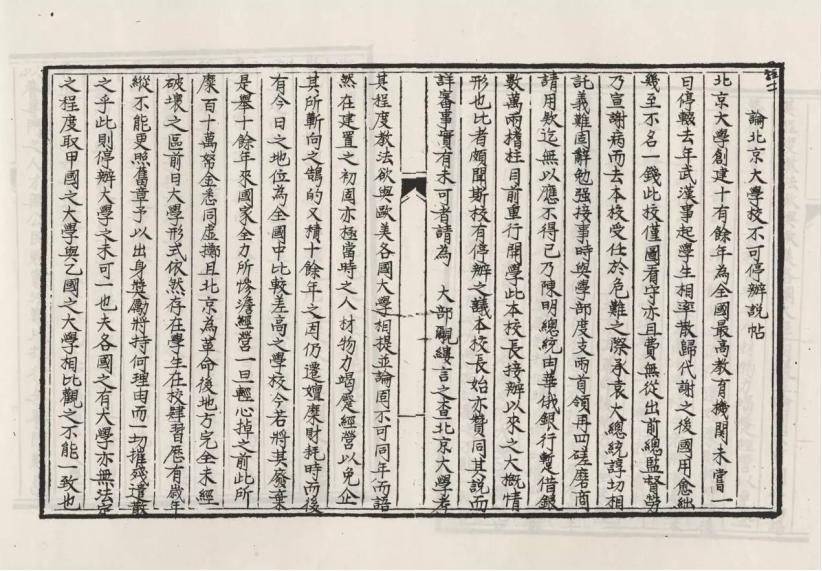 論北京大學校不可停辦説帖
北京大學創建十有餘年為全國最高教育機關未嘗一
日停輟去年武漢事起學生相率散歸代謝之後國用愈絀
幾至不名一錢此校僅圖看守亦且費無從出前總監督勞
乃宣謝病而去本校受任於危難之際承袁大總統諄切相
託義難固辭勉强接事時與學部度支兩首領再四磋磨商
請用欵迄無以應不得已乃陳明總統由華俄銀行暫借銀
數萬兩稽拄目前重行開學此本校長接辦以來之大概情
形也比者頗聞斯校有停辦之議本校長始亦贊同其説而
詳審事實有未可者請為 大部覼縷言之查北京大學考
其程度教法欲與歐美各國大學相提並論固不可同年而語
然在建置之初固亦極當時之人材物力竭蹷經營以免企
其所嶄向之鵠的又積十餘年之因仍遷嬗糜財耗時而後
有今日之地位為全國中比較差高之學校今若將其廢棄
是舉十餘年來國家全力所慘澹經營一旦輕心掉之前此所
糜百十萬帑金悉同虛擲且北京為革命後地方完全未經
破壞之區前日大學形式依然存在學生在校肄習歷有歲年
縱不能更照舊章予以出身奬勵將持何理由而一切摧殘遣散
之乎此則停辦大學之未可一也夫各國之有大學亦無法定
之程度取甲國之大學與乙國之大學相比觀之不能一致也